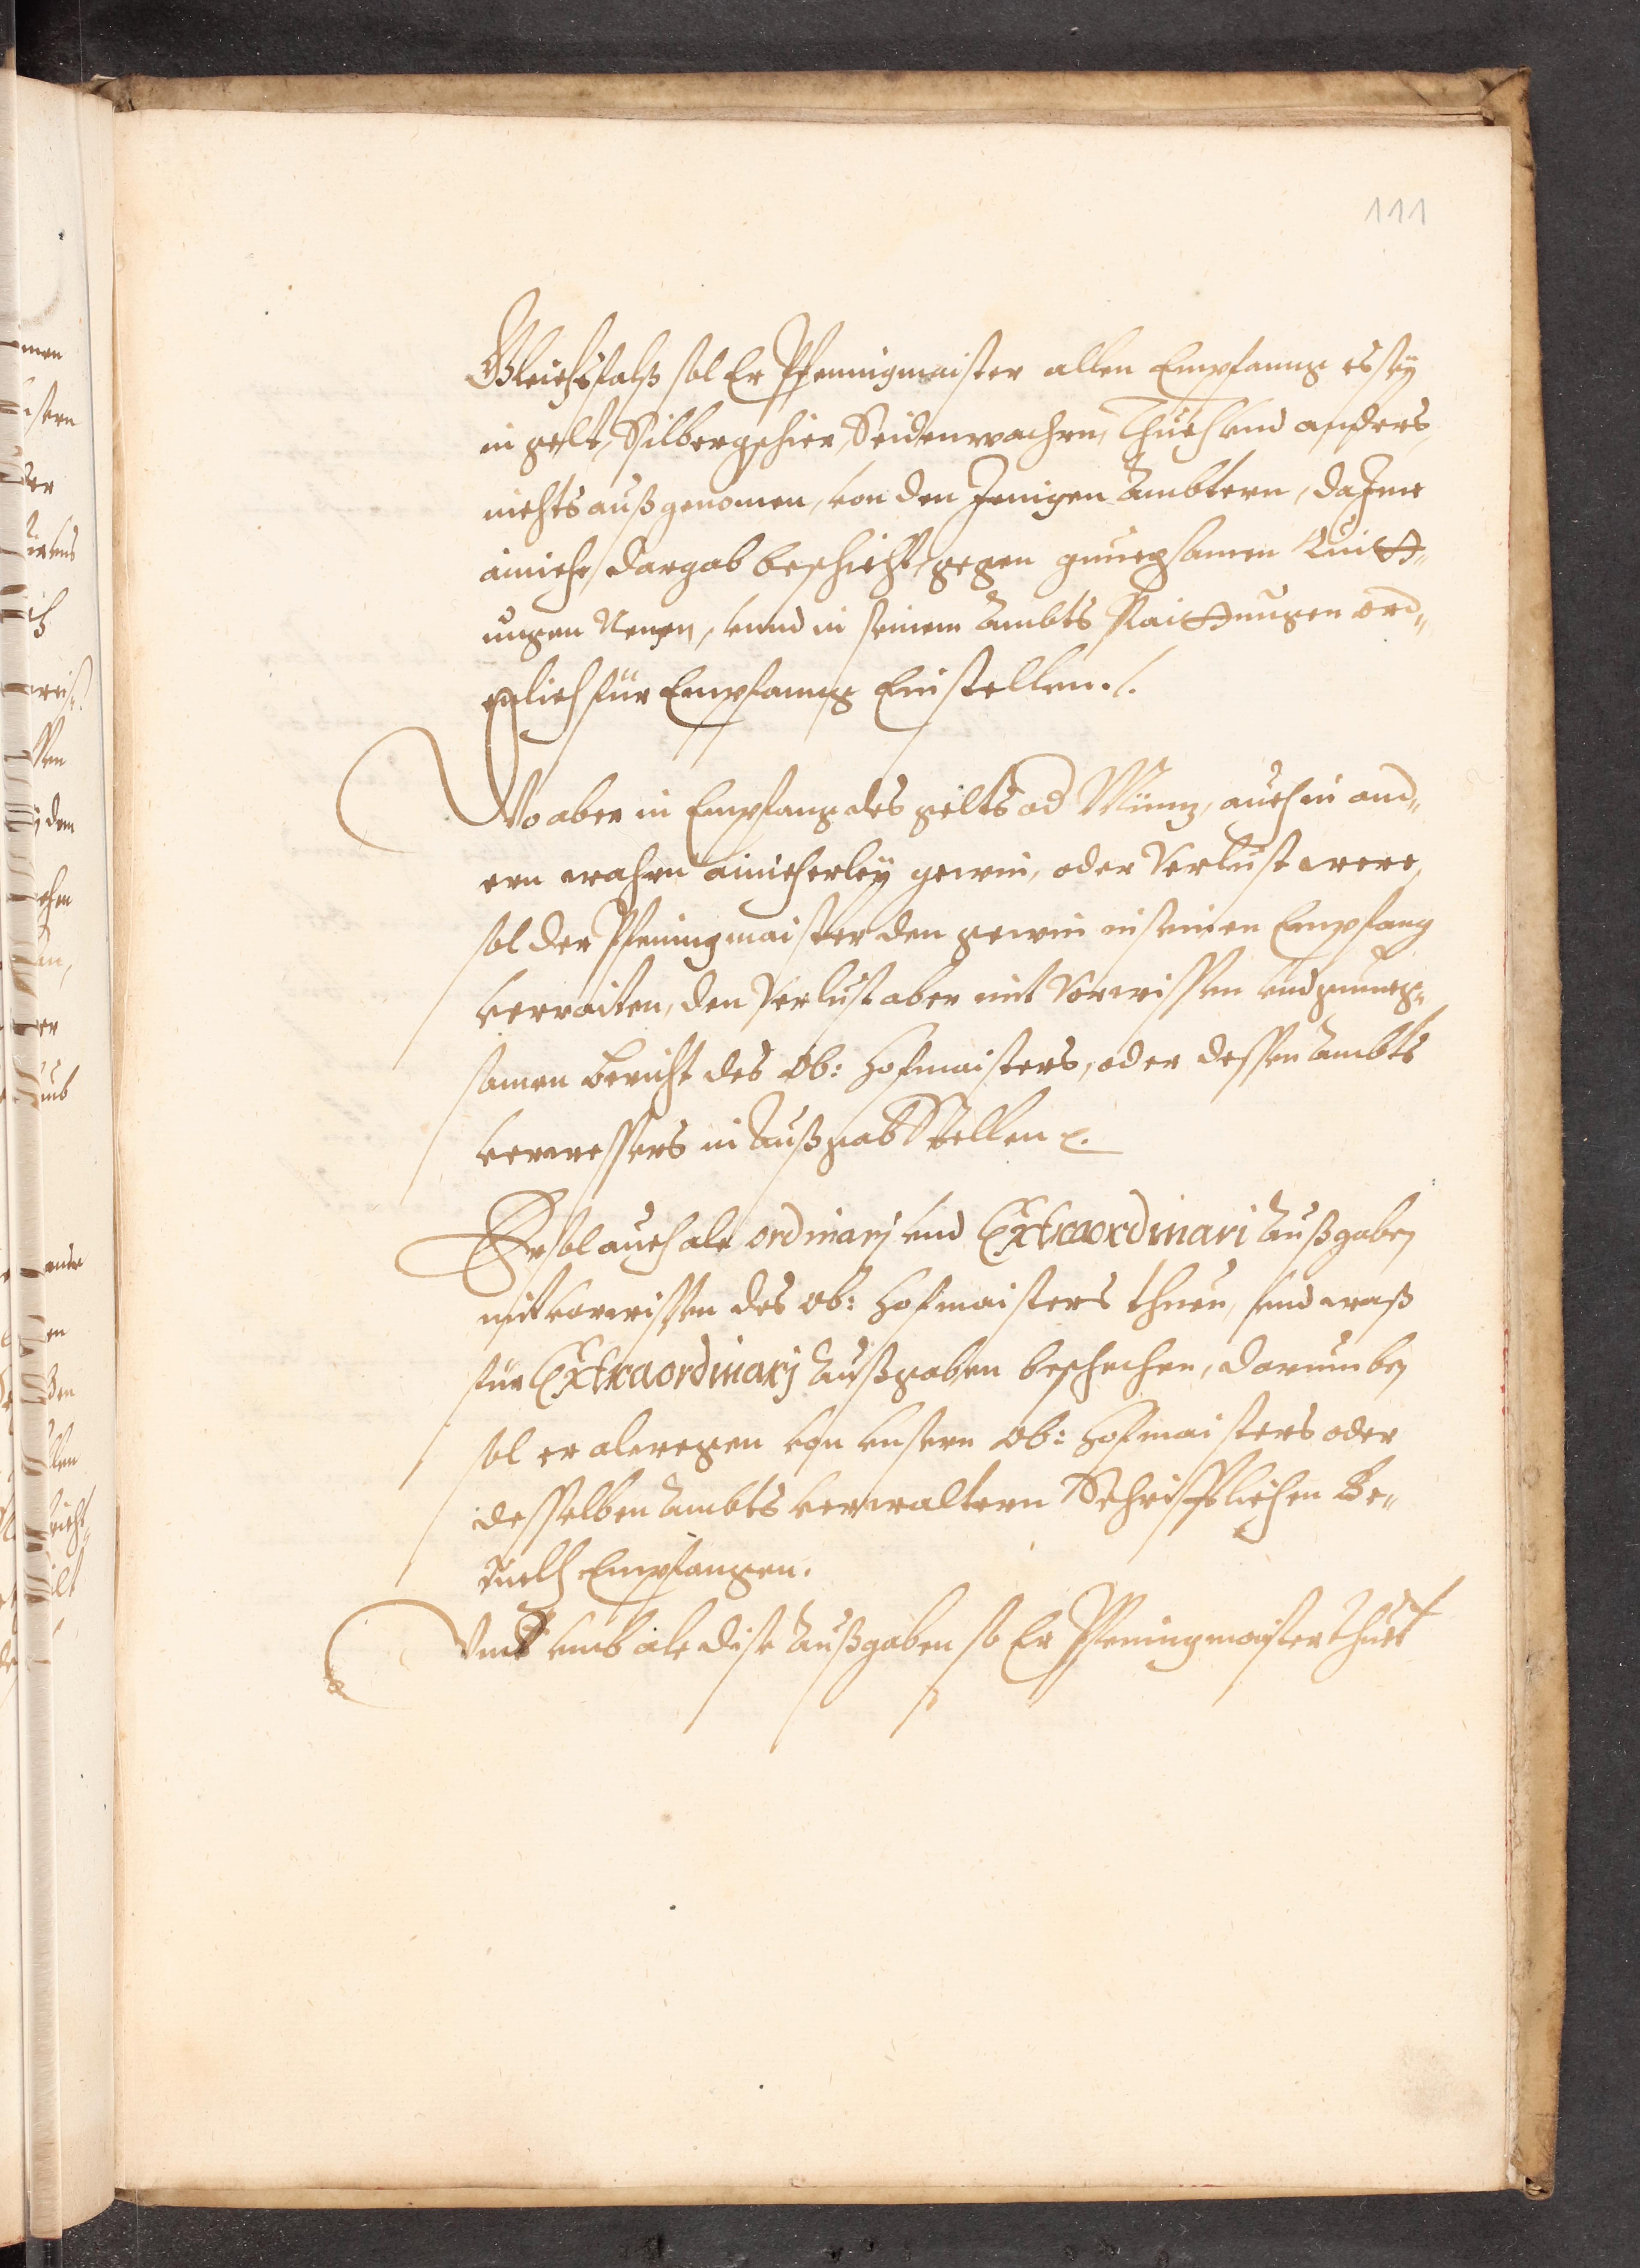 111
Gleichsfalß sol Er Pfenningmaister allen Empfanng es seÿ
in gelt, Silbergschier, Seidenwachrn, Thuech vnd anders,
nichts außgenomen, von den Jenigen Ambtern, da Jme
ainiche dargab beschicht, gegen gnuegsamen Quitt„
ungen Nemen, vnnd in seinem Ambts Raittungen ord„
enlich für Empfanng Einstellen./.
Wo aber in Empfang des gelts od Münz, auch in and„
ern wahrn ainicherleÿ gewin, oder Verlust were,
sol der Pfeningmaister den gewin in seinen Empfang
verraiten, den Verlust aber mit Vorwissen vnd gnueg„
samen bericht des Ob: Hofmaisters, oder dessen Ambts
verwessers in Außgab Stellen
Er sol auch ale ordinarj vnd Extraordinari Außgaben
mit vorwissen des Ob: Hofmaisters thuen, vnd waß
für Extraordinarj Außgaben beschechen, darumben
sol er alwegen von vnsern Ob: Hofmaisters oder
desselben Ambts verwaltern Schrifftlichen Be„
uelch Empfangen.
Vmb ale dise Außgaben so Er Pfeningmaister thuet